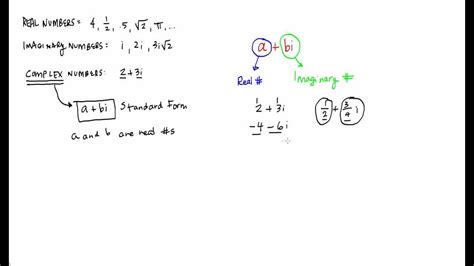 REAL NUMBERS = 4, 1/2, .5, √2, π, ...
IMAGINARY NUMBERS: i, 2i, 3i√2
COMPLEX NUMBERS: 2+3i
a+bi Standard Form
a and b are real #s
a + bi
Real #
Imaginary #
2 + 3i
1/2 + 3/4 i
-4 - 6i